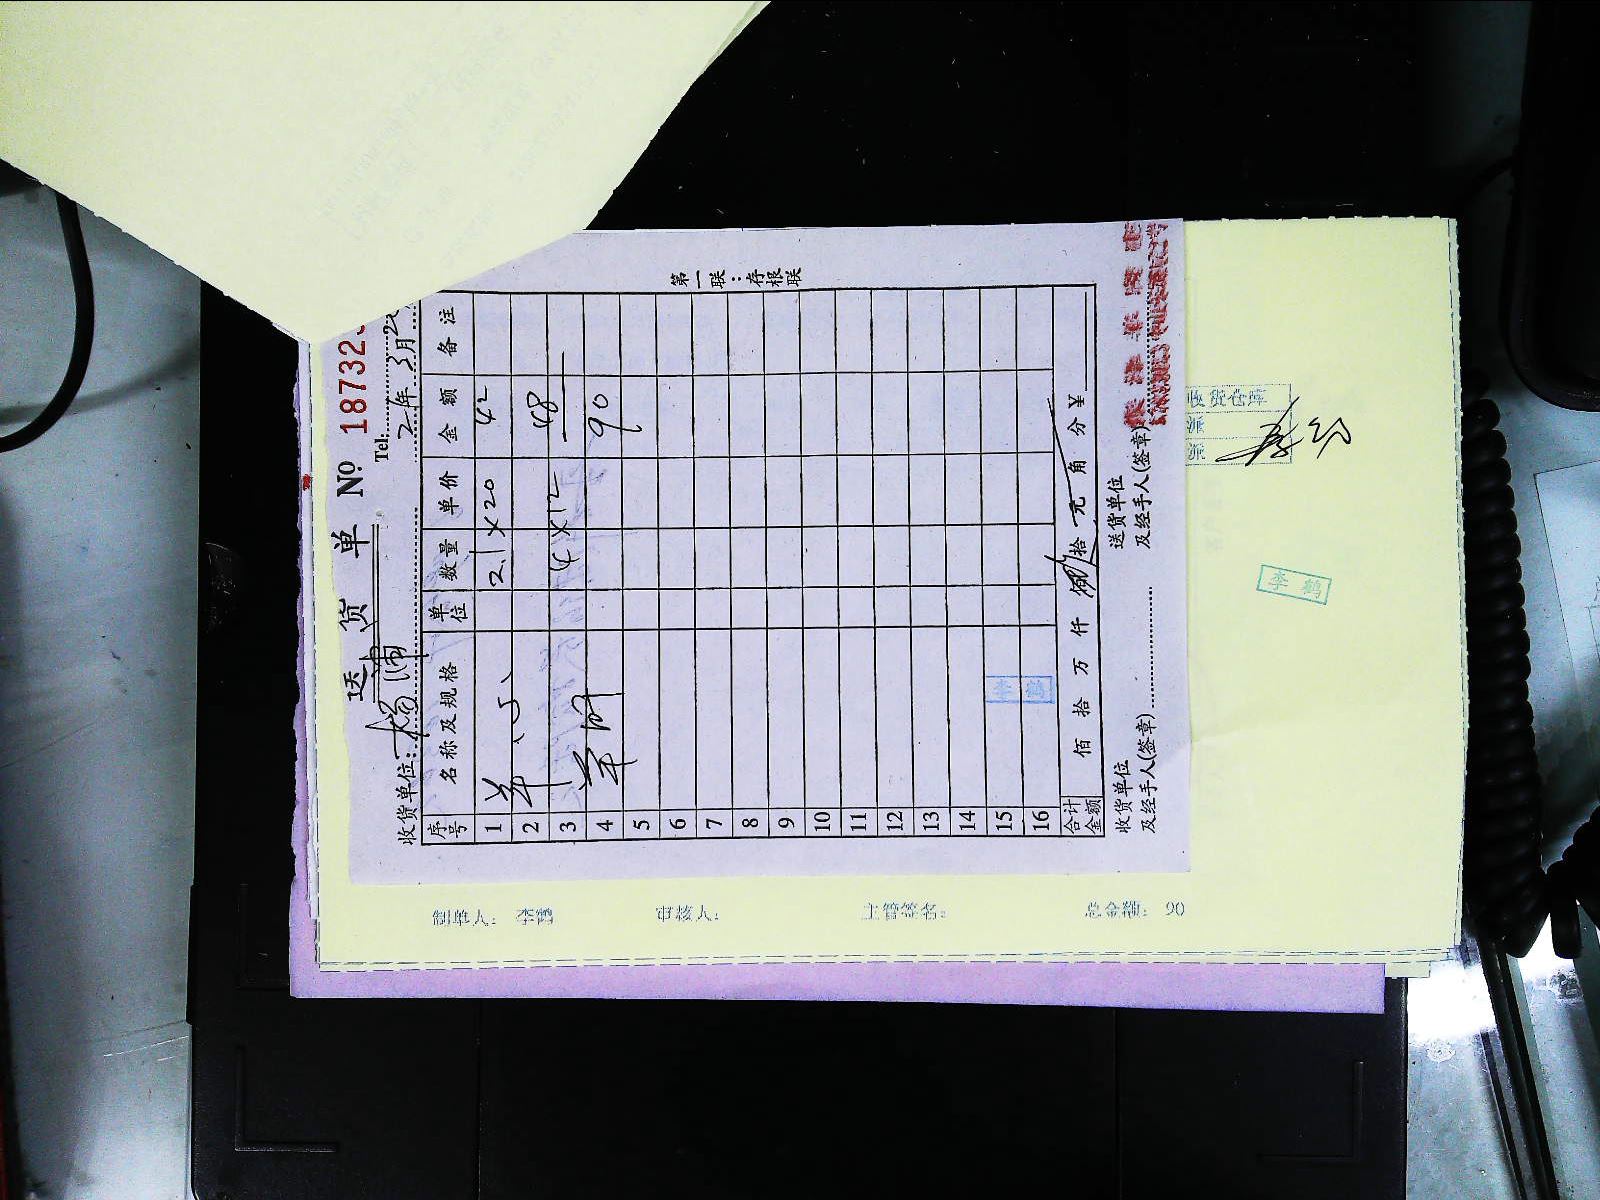 送 货 单 № 18732
Tel:
收货单位: 杨浦 21年 3月2
序号 名称及规格 单位 数量 单价 金额 备注
1 羊心 2.1×20 42
2
3 羊肝 4×12 48
4 90
5
6
7
8
9
10
11
12
13
14
15
16
李鹤
合计金额 佰 拾 万 仟 佰 拾 元 角 分 ¥
收货单位及经手人(签章) 送货单位及经手人(签章)
第一联：存根联
制单人: 李鹤 审核人: 主管签名: 总金额: 90
收货仓库
李鹤